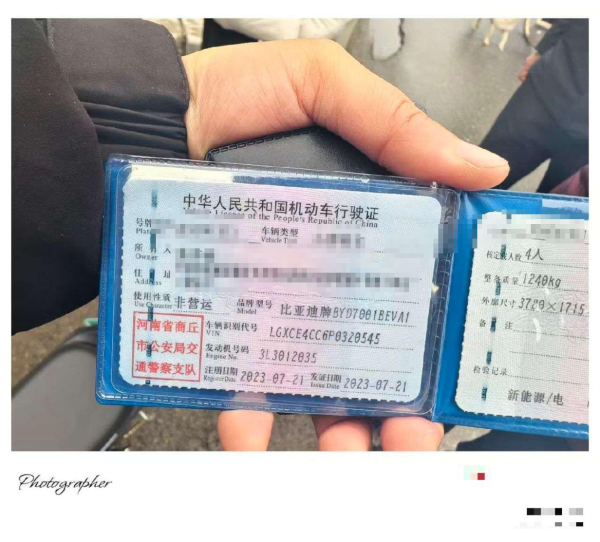 中华人民共和国机动车行驶证
License of the People's Republic of China
号牌
Plate
车辆类型
Vehicle T
所有人
Owner
住址
Address
使用性质 非营运
Use Character
品牌型号 比亚迪牌BYD7001BEVA1
Model
河南省商丘
市公安局交
通警察支队
车辆识别代号
VIN
LGXCE4CC6P0320545
发动机号码
Engine No.
3L3012035
注册日期 2023-07-21
Register Date
发证日期 2023-07-21
Issue Date
核定载人数 4人
整备质量 1240kg
外廓尺寸 3780×1715
备注
检验记录
新能源/电
Photographer